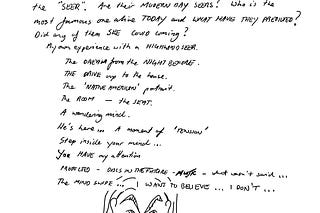 the "SEER". Are their MODERN DAY SEERS? Who is the
most famous one alive TODAY and WHAT HAVE THEY PREDICTED?
Did any of them SEE COVID coming?
My own experience with a HIGHLAND SEER.
The DRAMA from the NIGHT BEFORE.
THE DRIVE up to the house.
The 'NATIVE AMERICAN' portrait.
The ROOM — the SEAT.
A wandering mind.
He's here... A moment of 'TENSION'
Step inside your mind...
You HAVE my attention
PREDICTED - DOES IN THE FUTURE - - what wasn't said...
The MIND SWIPE... I WANT TO BELIEVE... I DON'T...